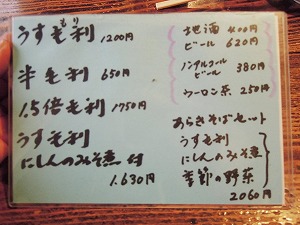 うす毛利 1200円
もり
半毛利 650円
1.5倍毛利 1750円
うす毛利
にしんのみそ煮 付
1.630円
地酒 400円
ビール 620円
ノンアルコール
ビール 380円
ウーロン茶 250円
あらきそばセット
うす毛利
にしんのみそ煮
季節の野菜
2060円